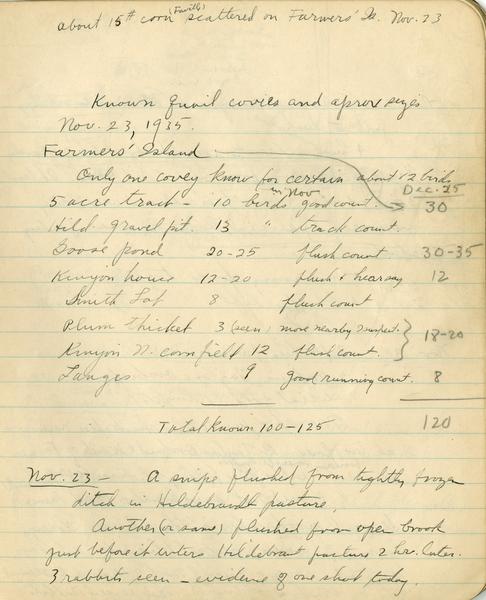 about 15# corn (Faville) scattered on Farmers' Is. Nov. 23
Known quail covies and aprox sizes
Nov. 23, 1935.
Farmers' Island
Only one covey know for certain about 12 birds
Dec. 25
5 acre tract - 10 birds in Nov good count. 30
Hild. gravel pit. 13 " track count.
Goose pond 20-25 flush count 30-35
Kinyon house 12-20 flush & hearsay 12
Smith Lot 8 flush count
Plum thicket 3 (seen) more nearby I suspect. 18-20
Kinyon N. cornfield 12 flush count.
Langes 9 good running count. 8
Total known 100-125 120
Nov. 23 - A snipe flushed from tightly frozen
ditch in Hildebrandt pasture,
Another (or same) flushed from open brook
just before it enters Hildebrant pasture 2 hr. later.
3 rabbits seen - evidence of one shot today.